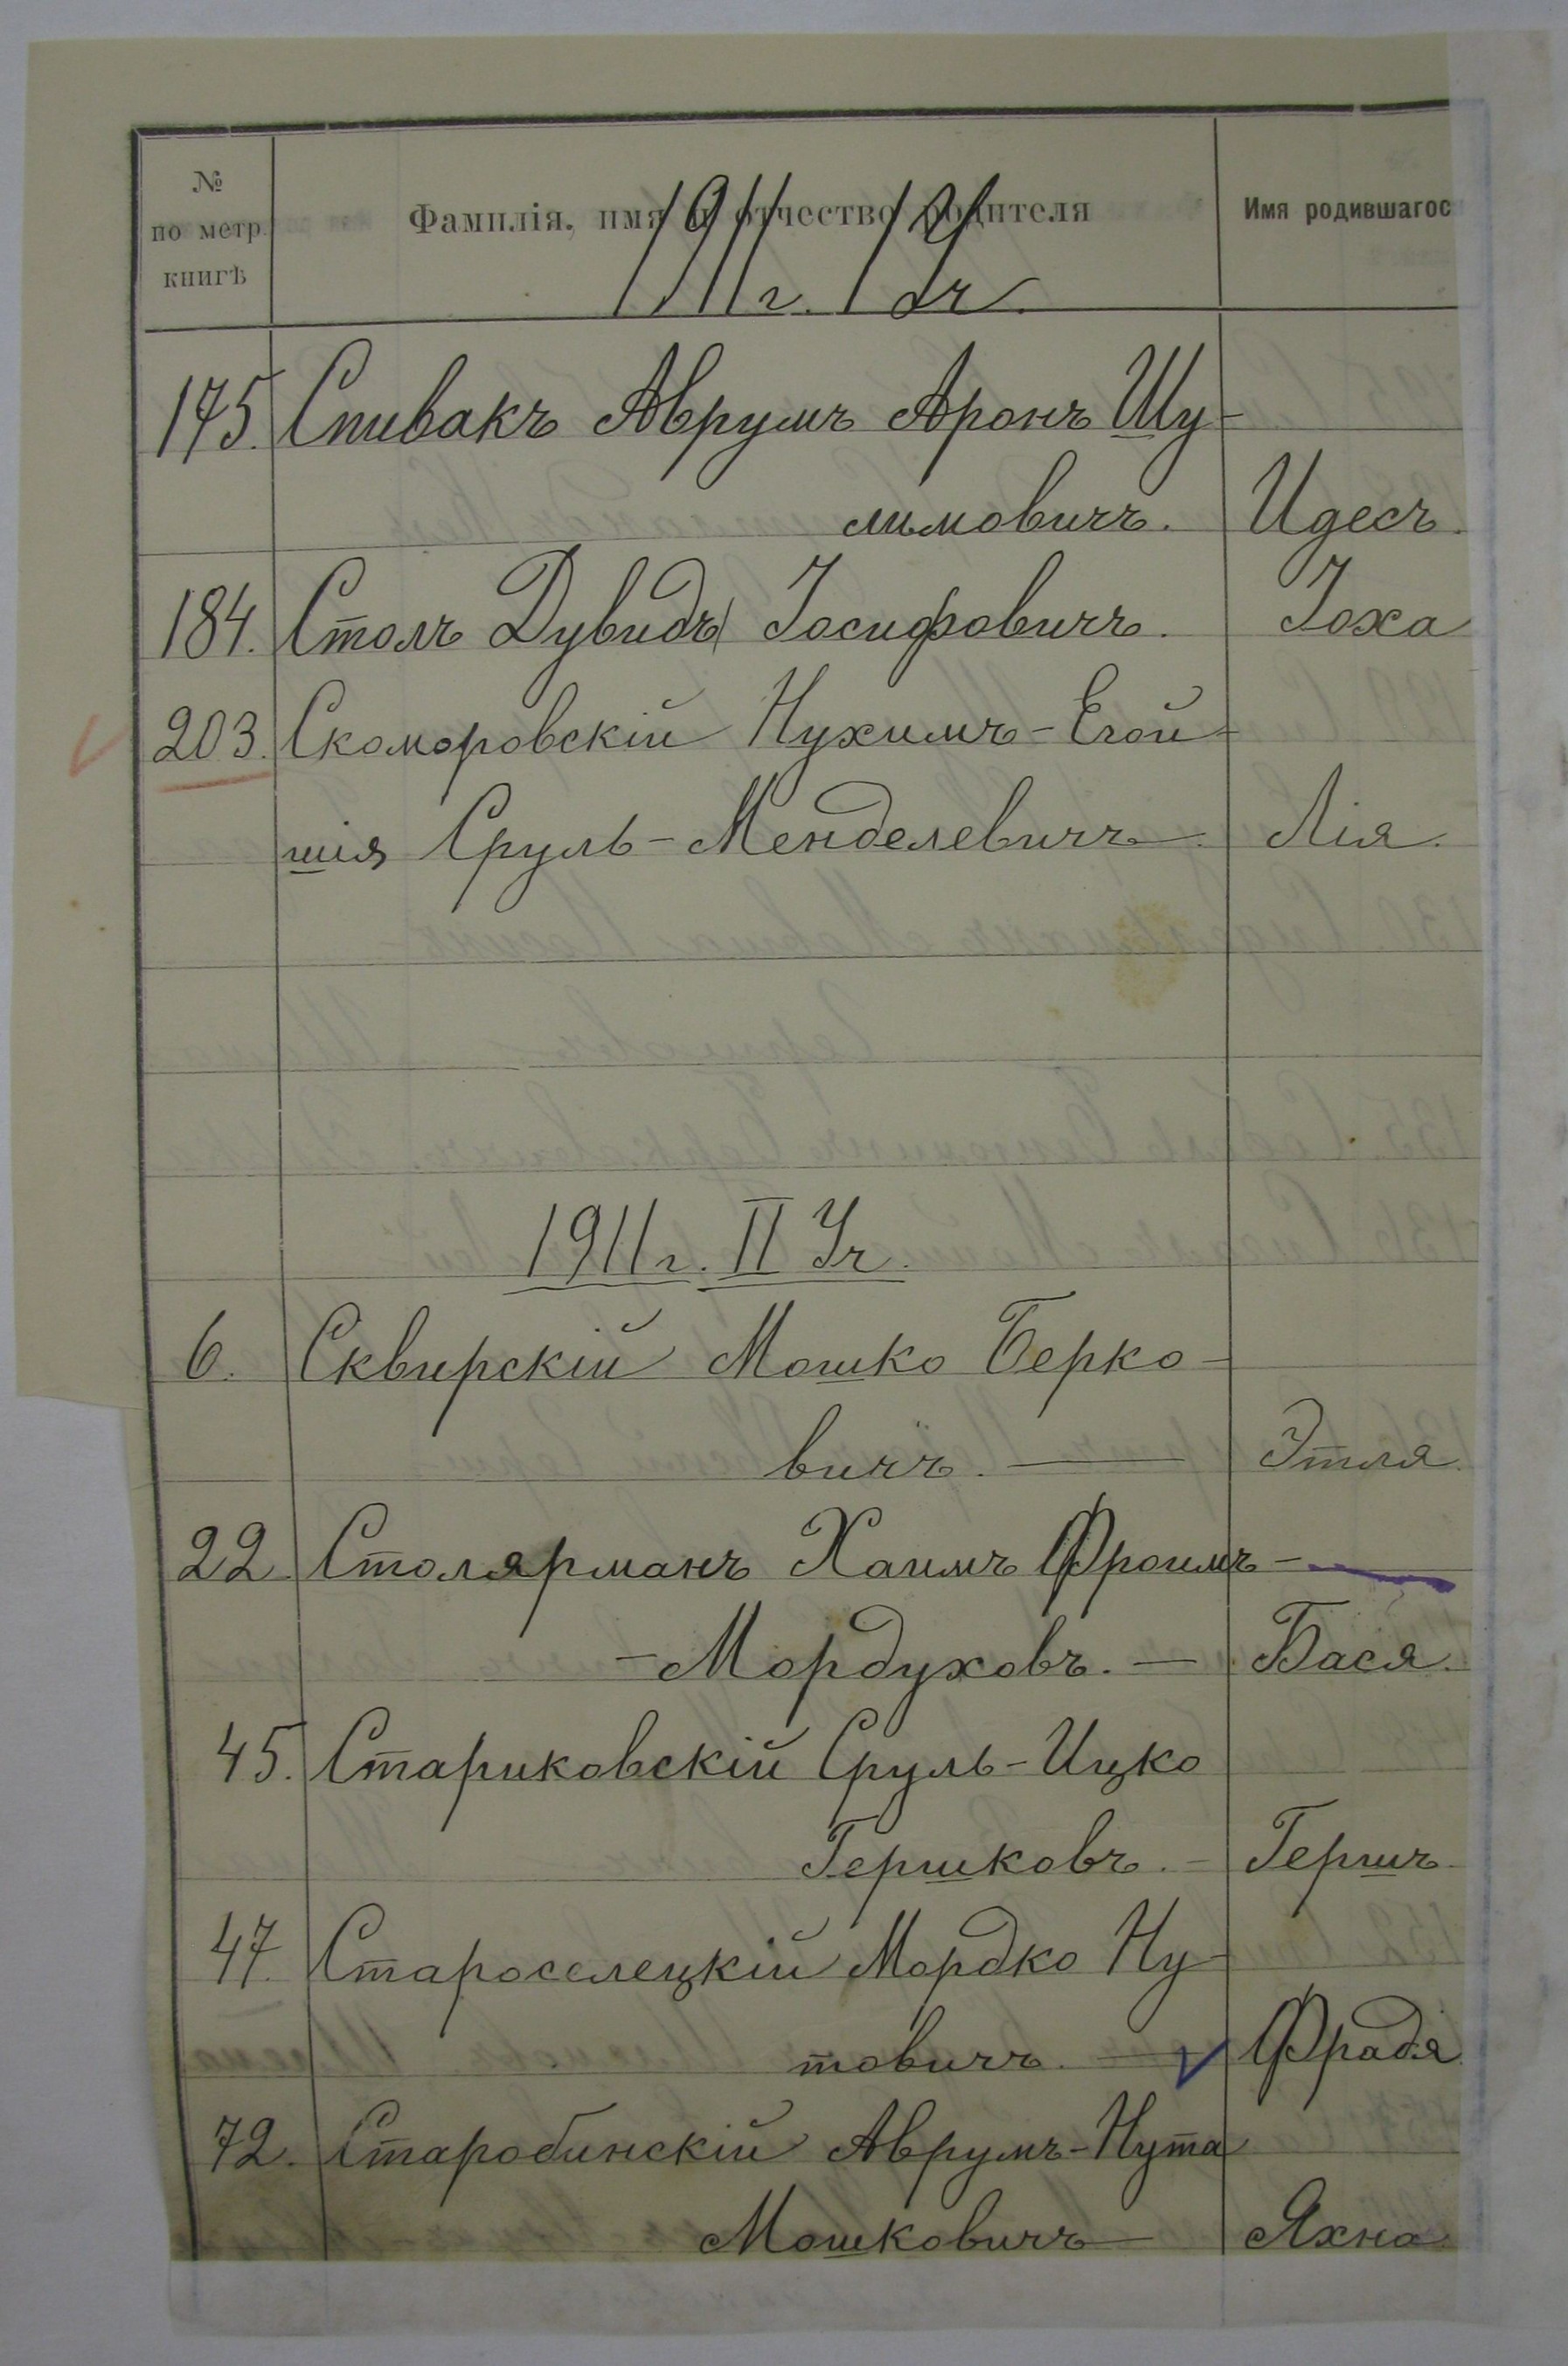 № по метр. книгѣ
Фамилія, имя и отчество родителя
Имя родившагос
1911 г. I Уч.
175. Спивакъ Аврумъ Аронъ Шу-
лимовичъ. Идесъ.
184. Столъ Дувидъ Іосифовичъ. Іоха
203. Скоморовскій Нухимъ-Егой-
шія Сруль-Менделевичъ. Лія.
1911 г. II Уч.
6. Сквирскій Мошко Берко-
вичъ. — Этля.
22. Столярманъ Хаимъ Фроимъ-
-Мордуховъ. — Бася.
45. Стариковскій Сруль-Ицко
Гершковъ. - Гершъ
47. Староселецкій Мордко Ну-
товичъ. — Фрадя
72. Старобинскій Аврумъ-Нута
Мошковичъ — Яхна